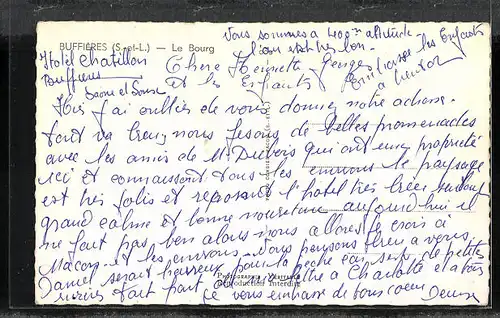 BUFFIÈRES (S.-et-L.) — Le Bourg
Vous sommes a 400m altitude
l'air est très bon.
Hotel Chatillon
Buffieres
Saone et Loire
Chere Henriette Georges
et les Enfants
Embrasse les Enfants
Hier j'ai oublier de vous donner notre adresse.
tout va bien nous fesons de belles promenades
avec les amis de Mr Dubois qui ont une propriété
ici et connaissent tous les environs le paysage
est très jolis et reposant l'hotel très bien surtout
grand calme et bonne nouriture aujourd'hui il
ne fait pas ben alors nous allons je crois à
Macon et les environs. Vous pensons bien a vous.
Daniel serait heureux pour la peche car de petites
rivières tout part
Reproduction Interdite
a Charlotte et a tous
je vous embrasse de tous coeur Denise